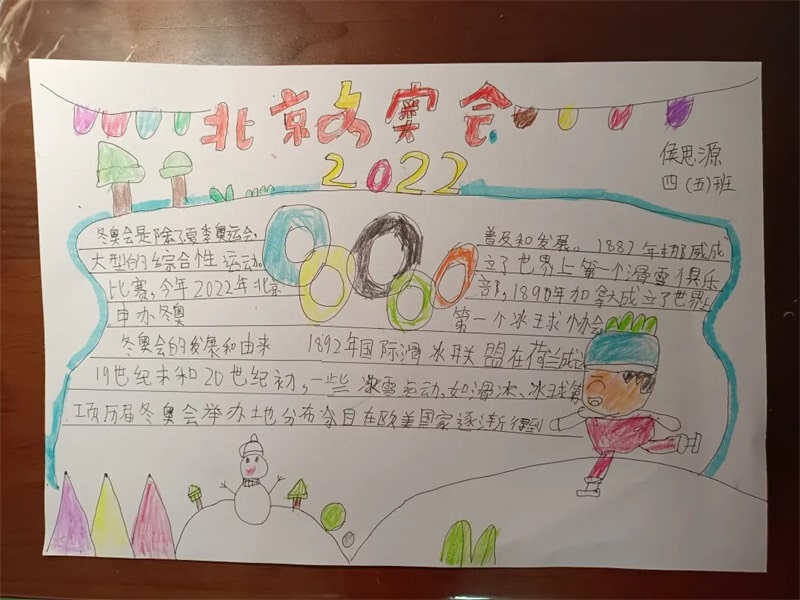 北京冬奥会
2022
侯思源
四(五)班
冬奥会是除了夏季奥运会,
大型的综合性运动。
比赛,今年2022年北京
申办冬奥
普及和发展。1887年挪威成
立了世界上第一个滑雪俱乐
部,1890年加拿大成立了世界上
第一个冰球协会
冬奥会的发展和由来 1892年国际滑冰联盟在荷兰成立
19世纪末和20世纪初,一些冰雪运动,如滑冰、冰球等
项历届冬奥会举办地分布今目在欧美国家逐渐得到